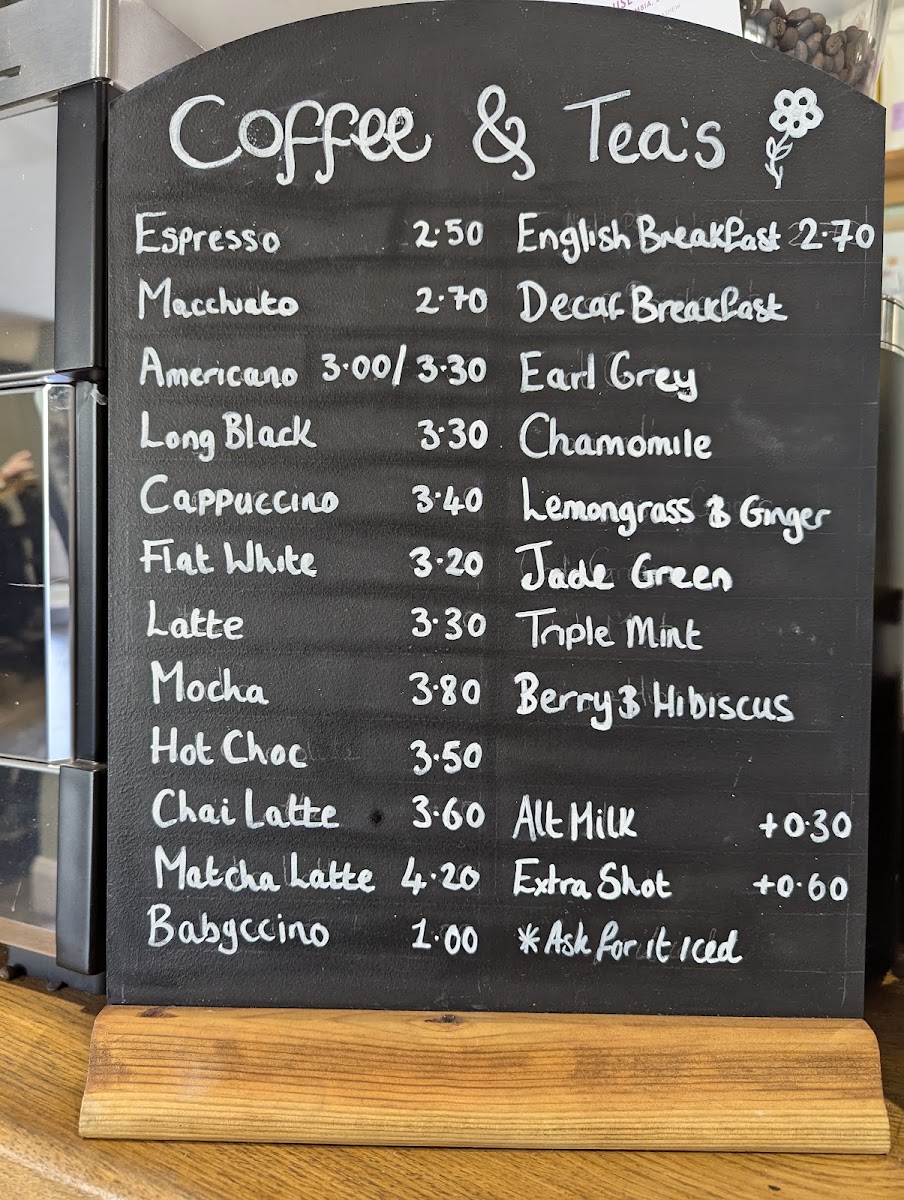 Coffee & Tea's
Espresso 2.50
Macchiato 2.70
Americano 3.00/3.30
Long Black 3.30
Cappuccino 3.40
Flat White 3.20
Latte 3.30
Mocha 3.80
Hot Choc 3.50
Chai Latte 3.60
Matcha Latte 4.20
Babyccino 1.00
English Breakfast 2.70
Decaf Breakfast
Earl Grey
Chamomile
Lemongrass & Ginger
Jade Green
Triple Mint
Berry & Hibiscus
Alt Milk +0.30
Extra Shot +0.60
*Ask for it iced